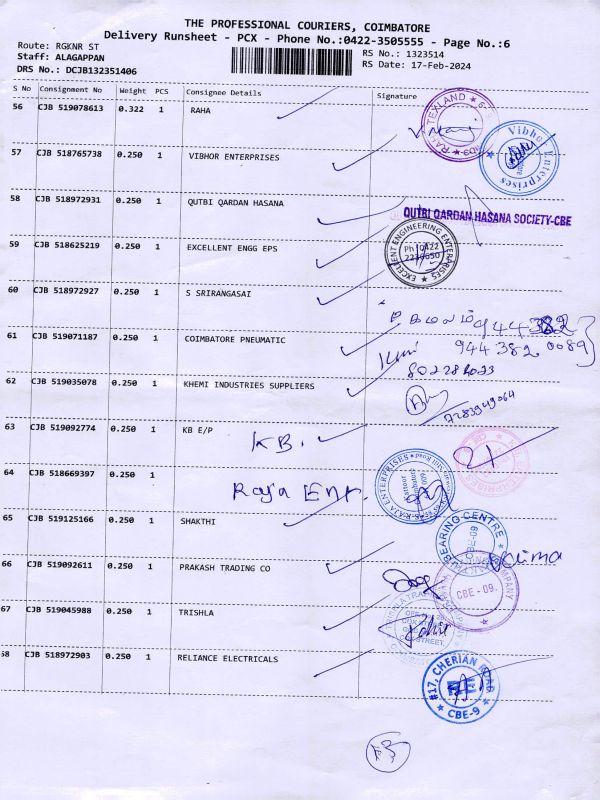 THE PROFESSIONAL COURIERS, COIMBATORE
Delivery Runsheet - PCX - Phone No.:0422-3505555 - Page No.:6
Route: RGKNR ST
Staff: ALAGAPPAN
DRS No.: DCJB132351406
RS No.: 1323514
RS Date: 17-Feb-2024
S No Consignment No Weight PCS Consignee Details Signature
56 CJB 519078613 0.322 1 RAHA
57 CJB 518765738 0.250 1 VIBHOR ENTERPRISES
Vibhor Enterprises
58 CJB 518972931 0.250 1 QUTBI QARDAN HASANA
QUTBI QARDAN HASANA SOCIETY-CBE
59 CJB 518625219 0.250 1 EXCELLENT ENGG EPS
EXCELLENT ENGINEERING ENTERPRISES
Ph:0422
2230650
60 CJB 518972927 0.250 1 S SRIRANGASAI
61 CJB 519071187 0.250 1 COIMBATORE PNEUMATIC
944 382 0089
62 CJB 519035078 0.250 1 KHEMI INDUSTRIES SUPPLIERS
63 CJB 519092774 0.250 1 KB E/P
KB.
64 CJB 518669397 0.250 1
Raja Ent.
65 CJB 519125166 0.250 1 SHAKTHI
BEARING CENTRE
CBE-09
66 CJB 519092611 0.250 1 PRAKASH TRADING CO
CBE - 09.
67 CJB 519045988 0.250 1 TRISHLA
58 CJB 518972903 0.250 1 RELIANCE ELECTRICALS
#17, CHERIAN ROAD
RE
CBE-9